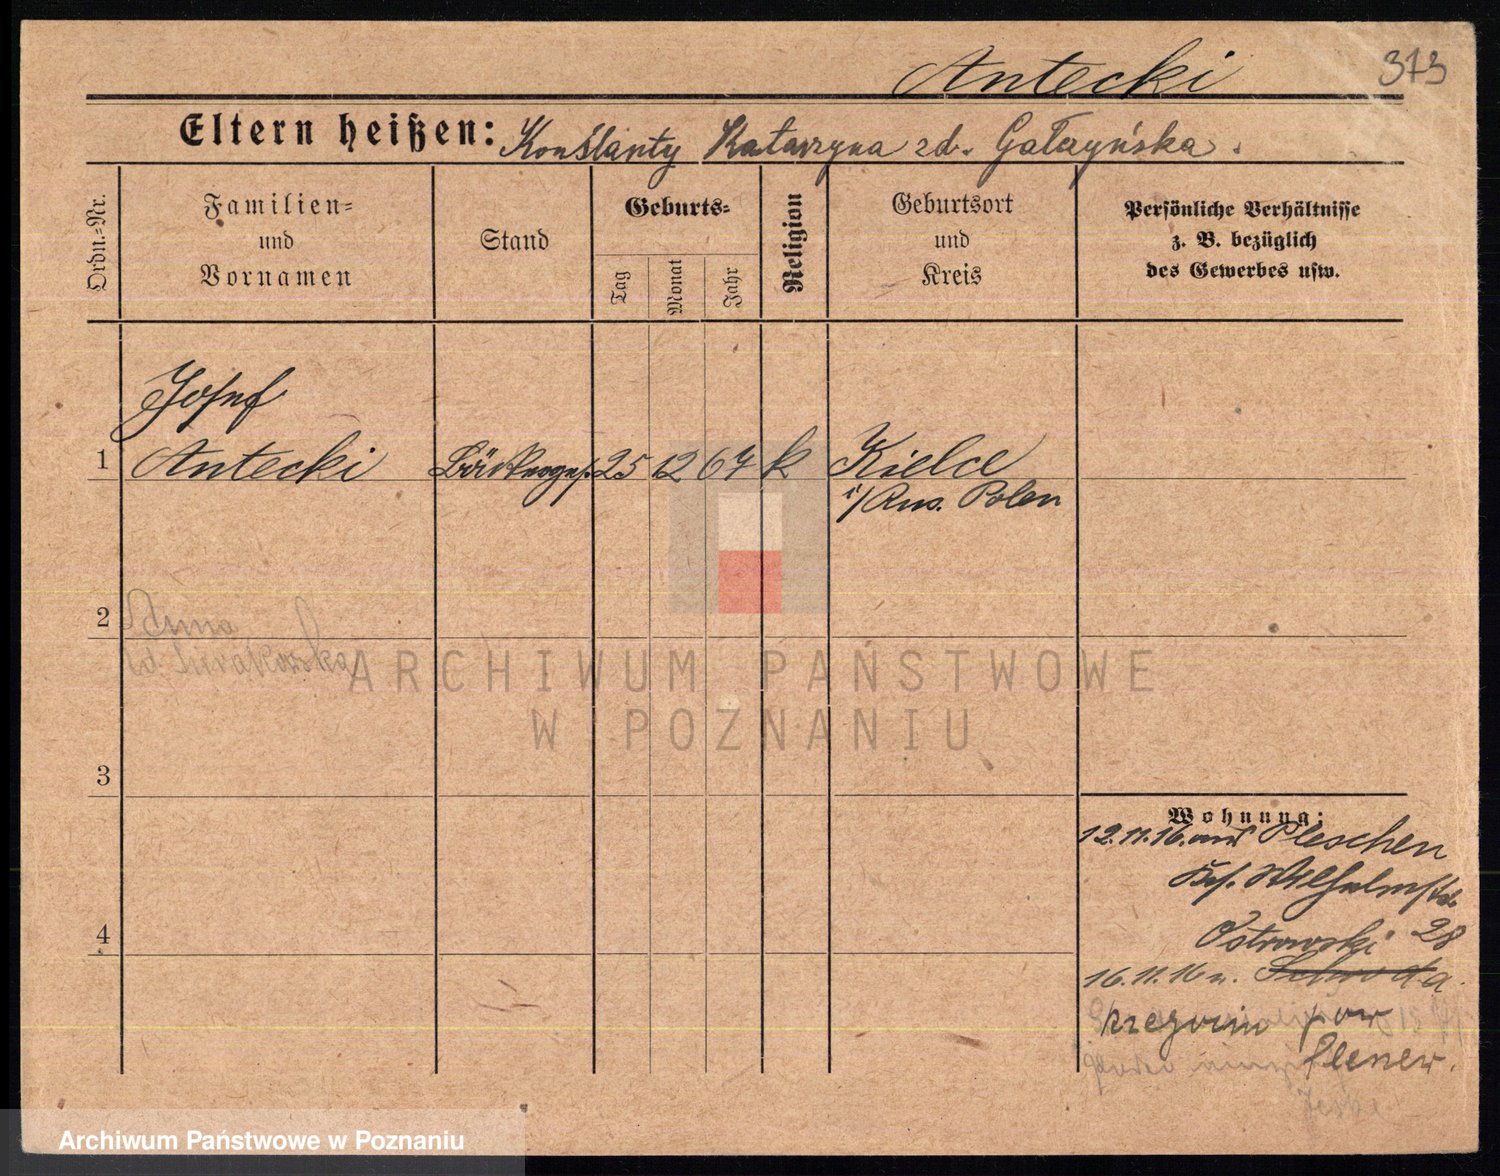 Antecki 373
Eltern heißen: Konstanty Katarzyna zd. Gałczyńska.
Ordn.-Nr.
Familien-
und
Vornamen
Stand
Geburts-
Tag
Monat
Jahr
Religion
Geburtsort
und
Kreis
Persönliche Verhältnisse
z. B. bezüglich
des Gewerbes usw.
Josef
1 Antecki Bäckerges. 25 12 67 k Kielce
i/Rus. Polen
2 Anna
3
4
Wohnung:
12.11.16. aus Pleschen
Bes. Wilhelmstr.
Ostrowski 28
16.11.16 n. Schroda
pow
ARCHIWUM PAŃSTWOWE
W POZNANIU
Archiwum Państwowe w Poznaniu